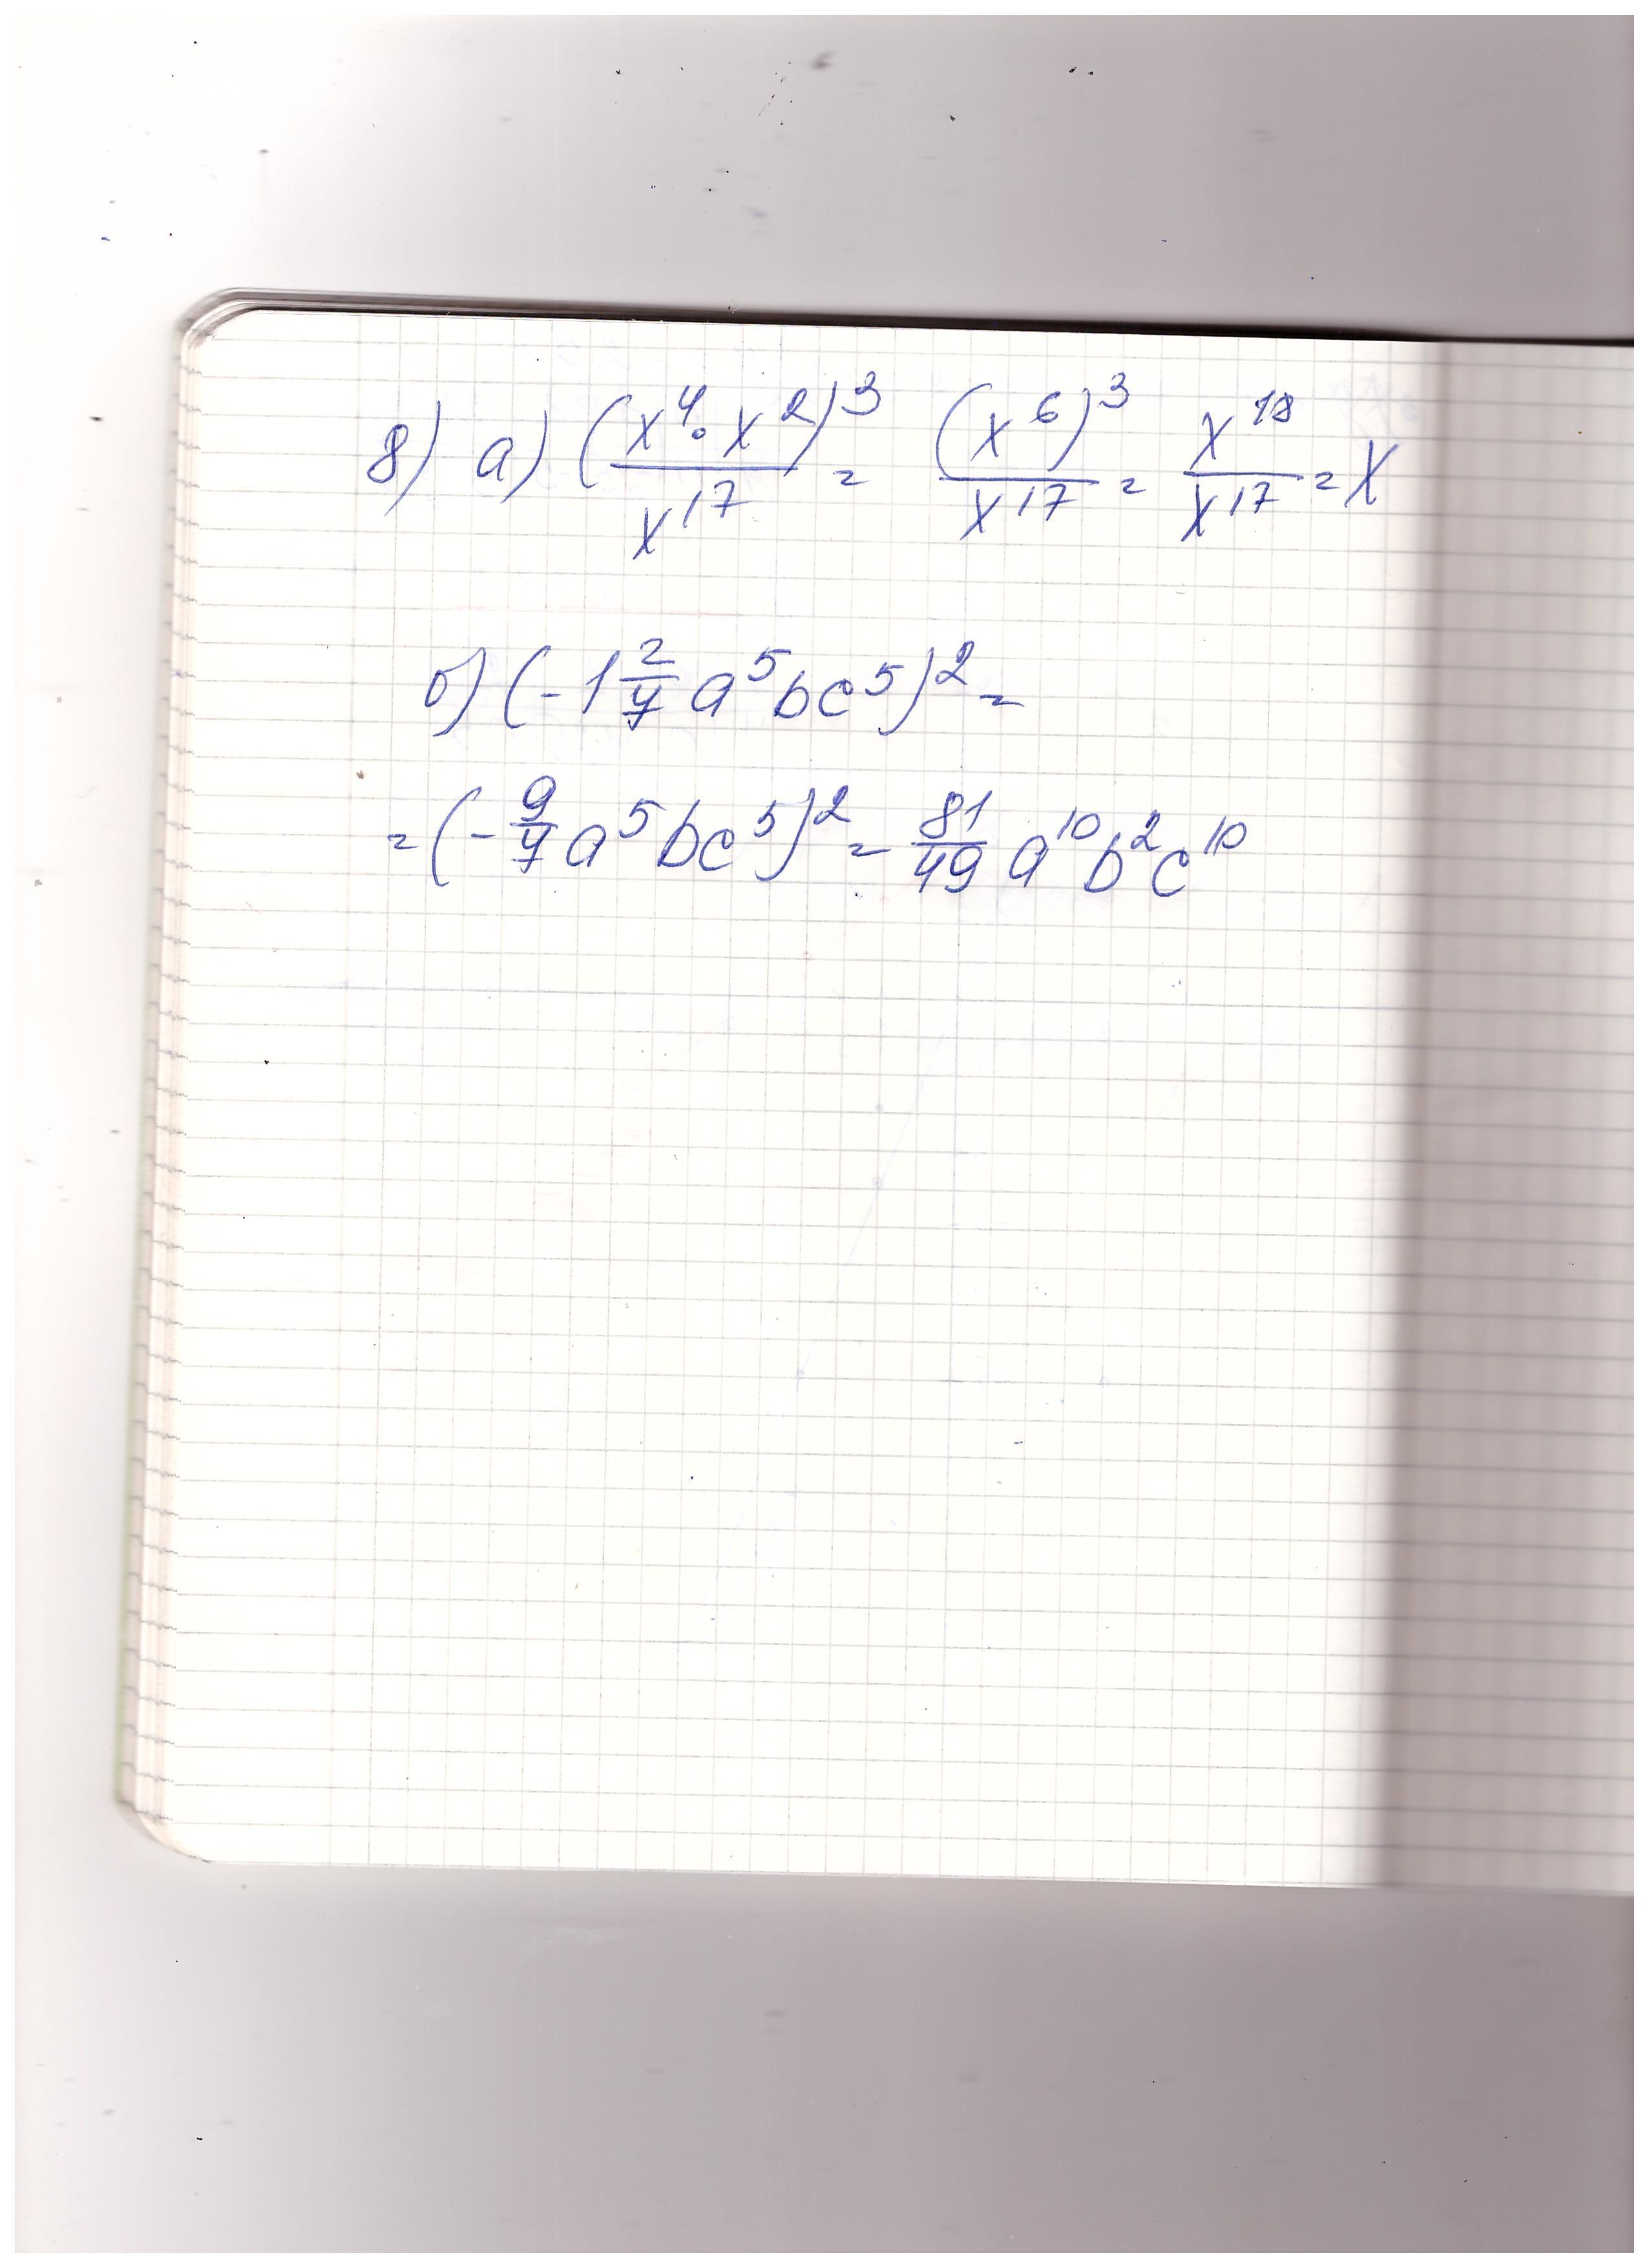 8) а) (x⁴•x²)³/x¹⁷ = (x⁶)³/x¹⁷ = x¹⁸/x¹⁷ = x
б) (-1 2/7 a⁵bc⁵)² =
= (-9/7 a⁵bc⁵)² = 81/49 a¹⁰b²c¹⁰